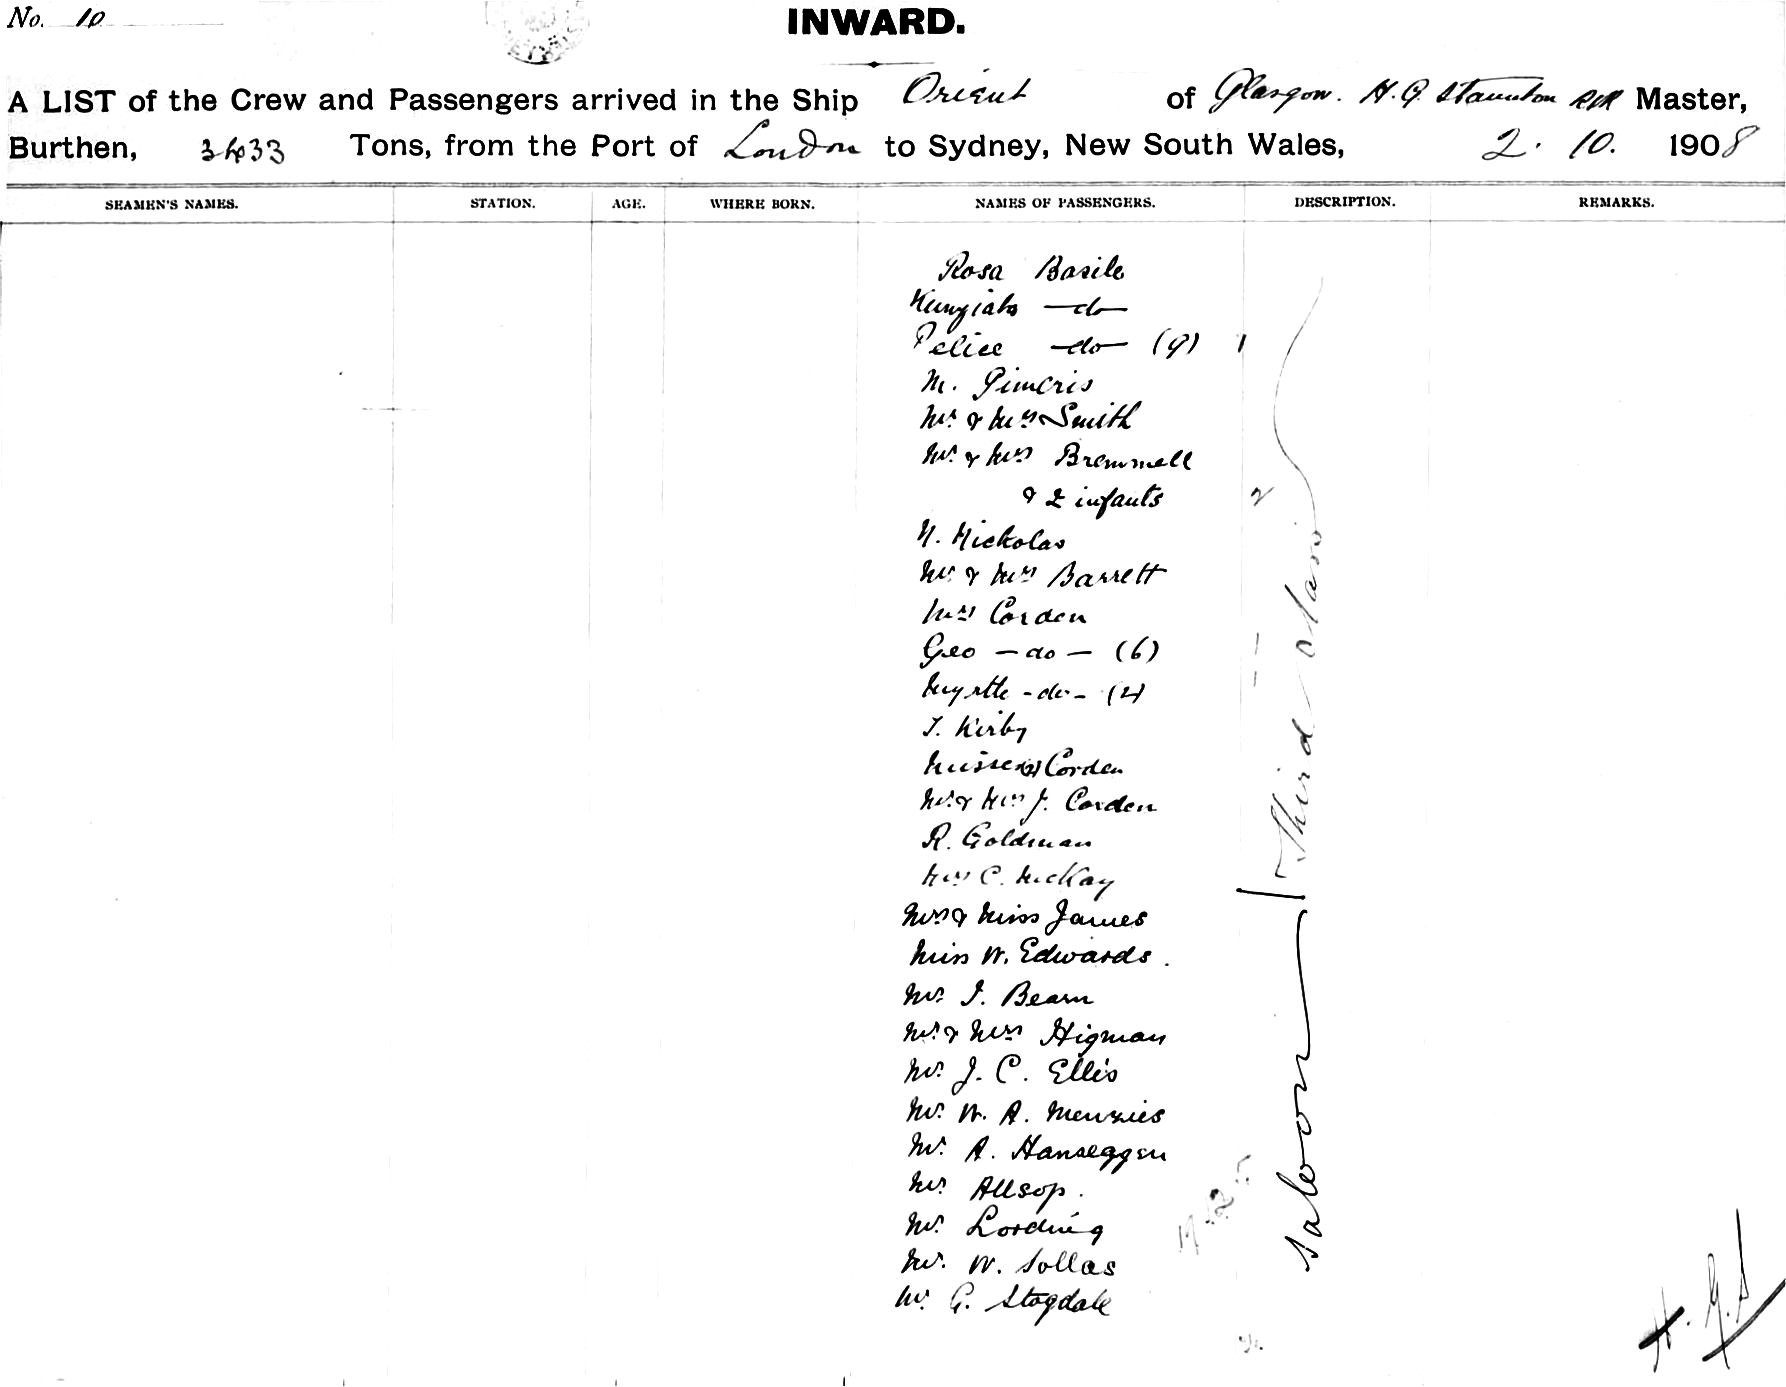 No. 10
INWARD.
A LIST of the Crew and Passengers arrived in the Ship Orient of Glasgow. H. G. Staunton RNR Master,
Burthen, 3433 Tons, from the Port of London to Sydney, New South Wales, 2. 10. 1908
SEAMEN'S NAMES. STATION. AGE. WHERE BORN. NAMES OF PASSENGERS. DESCRIPTION. REMARKS.
Rosa Basile
—do—
Felice —do— (9) 1
M. Pimeris
Mr. & Mrs Smith
Mr. & Mrs Bremmell
& 2 infants 2
N. Nickolas
Mr. & Mrs Barrett
Mrs Corden
Geo —do— (6)
Myrtle -do-
T. Kirby
Misses (2) Corden
Mr. & Mrs J. Corden
R. Goldman
C. McKay
Third class
Mrs & Miss James
Miss W. Edwards.
Mr. J. Bearn
Mr. & Mrs Higman
Mr. J. C. Ellis
Mr. W. A. Menzies
Mr. A. Hanseggen
Mr. Allsop.
Mr. Lording
Mr. W. Sollas
Mr. G. Stogdale
Saloon
H. G. S